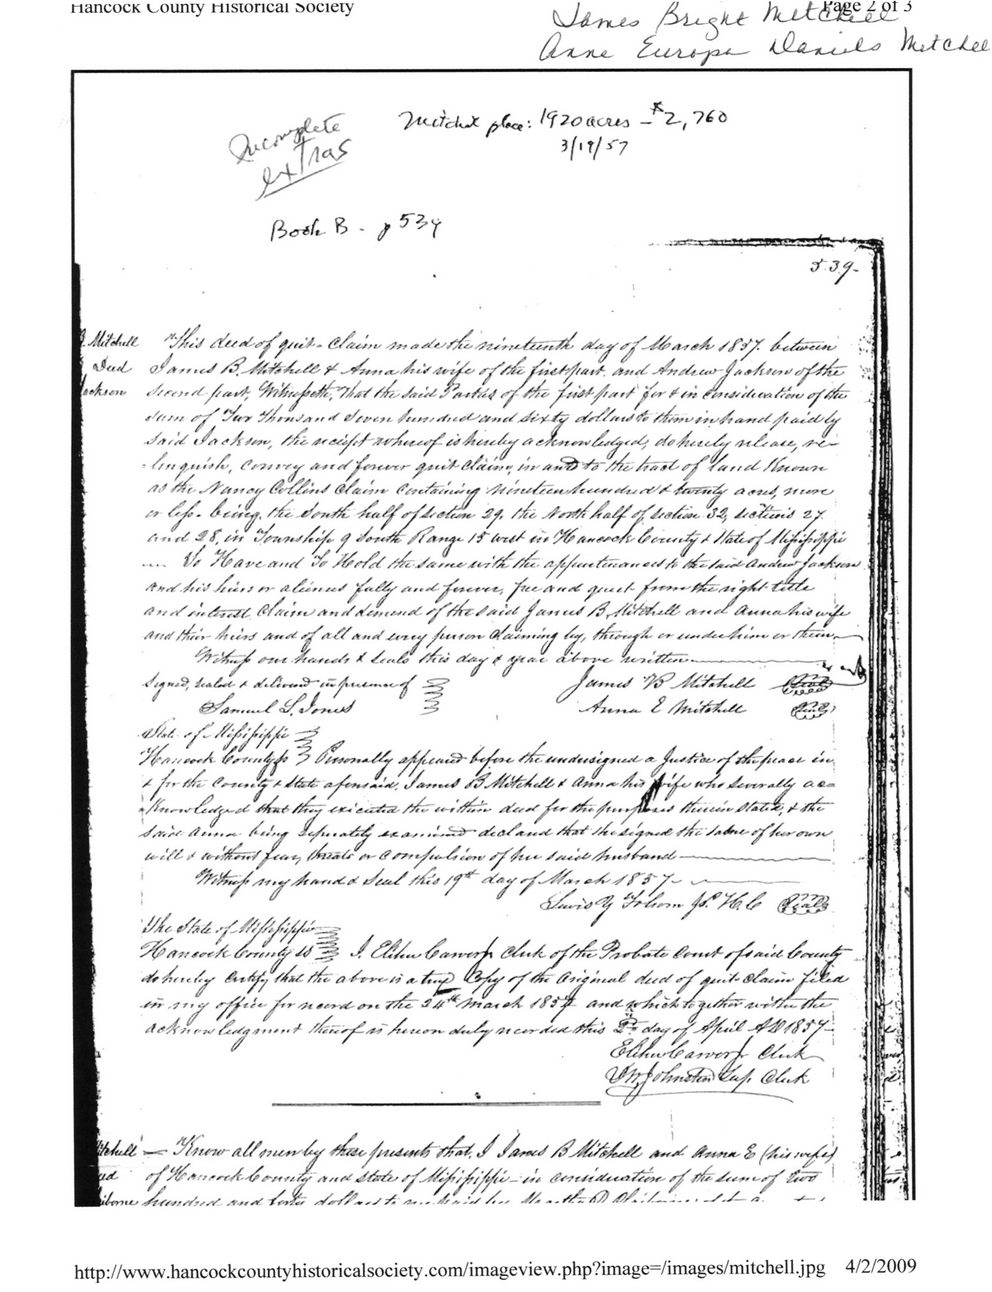 Hancock County Historical Society
Page 2 of 3
James Bright Mitchell
Anne Europa Daniels Mitchell
Mitchell place: 1920 acres - $2,760
3/19/57
Incomplete
extras
Book B - p 539
539-
Mitchell
Deed
Jackson
This deed of quit-Claim made the nineteenth day of March 1857. between
James B. Mitchell & Anna his wife of the first part, and Andrew Jackson of the
second part, Witnesseth, That the said Parties of the first part for & in consideration of the
sum of Two Thousand Seven hundred and sixty dollars to them in hand paid by
said Jackson, the receipt whereof is hereby acknowledged, do hereby release, re-
-linquish, Convey and forever quit Claim, in and to the tract of land Known
as the Nancy Collins Claim Containing nineteen hundred & twenty acres, more
or less- being, the South half of section 29, the North half of section 32, sections 27
and 28, in Township 9 South Range 15 west in Hancock County & State of Mississippi
To Have and To Hold the same with the appurtenances to the said Andrew Jackson
and his heirs or aliences fully and forever, free and quiet from the right title
and interest Claim and demend of the said James B. Mitchell and Anna his wife
and their heirs and of all and every person Claiming by, through or under him or them
Witness our hands & Seals this day & year above written
Signed, sealed & delivered in presence of
James B Mitchell Seal
Samuel L. Jones
Anna E Mitchell Seal
State of Mississippi
Hancock County ss Personally appeared before the undersigned a Justice of the peace in
& for the County & State aforesaid, James B Mitchell & Anna his wife who severally ac-
-knowledged that they executed the within deed for the purposes therein stated, & the
said Anna being seperately examined declared that she signed the same of her own
will & without fear, threats or compulsion of her said husband
Witness my hand & Seal this 19th day of March 1857-
Lewis Folsom J.P. H.C Seal
The State of Mississippi
Hancock County ss I, Elihu Carver Jr Clerk of the Probate Court of said County
do hereby Certify that the above is a true Copy of the original deed of quit Claim filed
in my office for record on the 24th March 1857 and which together with the
acknowledgment thereof is hereon duly recorded this 2nd day of April AD 1857-
Elihu Carver Jr Clerk
Johnston Dep Clerk
Mitchell - Know all men by these presents that, I James B Mitchell and Anna E (his wife)
of Hancock County and state of Mississippi - in consideration of the sum of two
hundred and
http://www.hancockcountyhistoricalsociety.com/imageview.php?image=/images/mitchell.jpg 4/2/2009